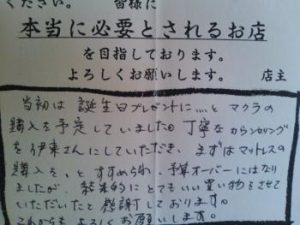 ください。 皆様に
本当に必要とされるお店
を目指しております。
よろしくお願いします。 店主
当初は 誕生日プレゼントに…と マクラの
購入を予定していました。丁寧なカウンセリング
を伊東さんにしていただき、まずはマットレスの
購入を、と すすめられ、予算オーバーにはなり
ましたが、結果的にとてもいい買い物をさせて
いただいたと感謝しております。
これからも よろしくお願いします。